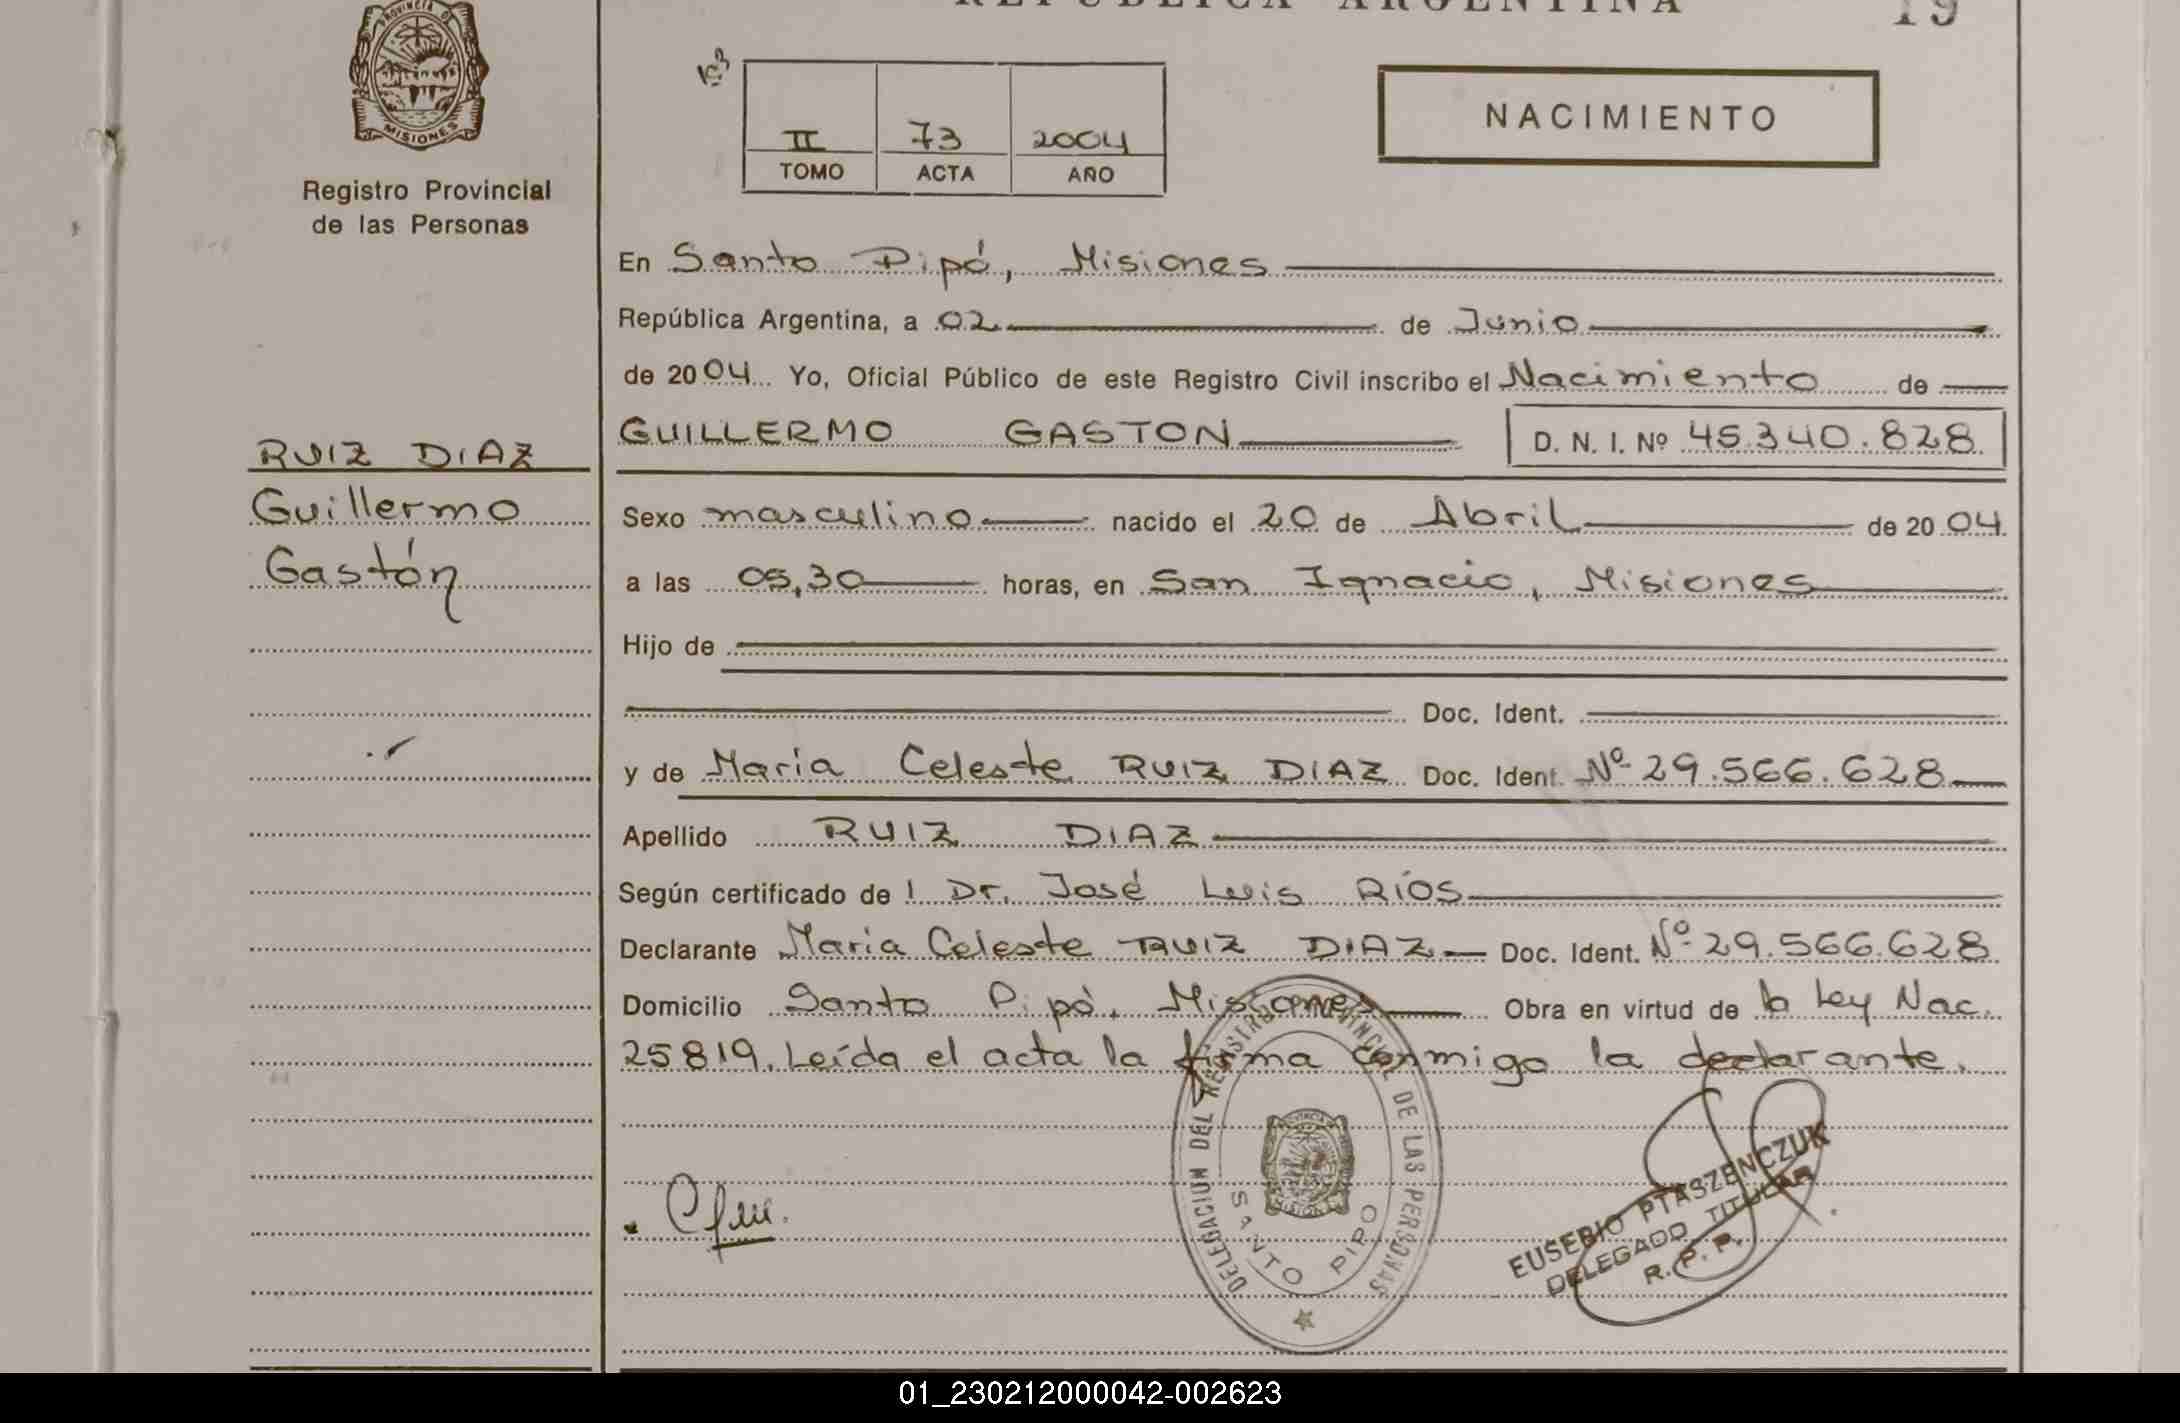 REPUBLICA ARGENTINA
19
PROVINCIA DE
MISIONES
Registro Provincial
de las Personas
II 73 2004
TOMO ACTA AÑO
NACIMIENTO
En Santo Pipó, Misiones
República Argentina, a 02 de Junio
de 2004 Yo, Oficial Público de este Registro Civil inscribo el Nacimiento de
GUILLERMO GASTON D. N. I. Nº 45.340.828
RUIZ DIAZ
Guillermo
Gastón
Sexo masculino nacido el 20 de Abril de 2004
a las 05,30 horas, en San Ignacio, Misiones
Hijo de
Doc. Ident.
y de Maria Celeste RUIZ DIAZ Doc. Ident. Nº 29.566.628
Apellido RUIZ DIAZ
Según certificado de l Dr. José Luis RÍOS
Declarante Maria Celeste RUIZ DIAZ Doc. Ident. Nº 29.566.628
Domicilio Santo Pipó, Misiones Obra en virtud de la Ley Nac.
25819. Leída el acta la firma conmigo la declarante.
DELEGACION DEL REGISTRO PROVINCIAL DE LAS PERSONAS
SANTO PIPO
EUSEBIO PTASZENCZUK
DELEGADO TITULAR
R. P. P.
01_230212000042-002623